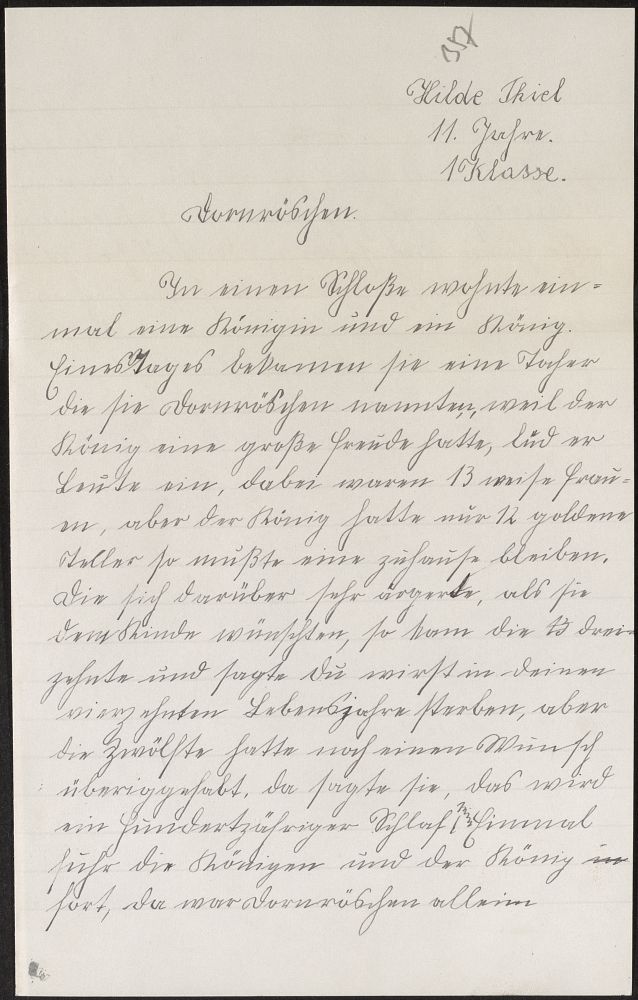 357
Hilde Thiel
11. Jahre.
1 Klasse.
Dornröschen.
In einen Schloße wohnte ein=
mal eine Königin und ein König.
Eines Tages bekamen sie eine Tocher
die sie Dornröschen nannten, weil der
König eine große Freude hatte, lud er
Leute ein, dabei waren 13 weise Frau=
en, aber der König hatte nur 12 goldene
Teller so mußte eine zuhause bleiben.
Die sich darüber sehr ärgerte, als sie
dem Kinde wünschten, so kam die 13 drei=
zehnte und sagte du wirst in deinen
vierzehnten Lebensjahre sterben, aber
die Zwölfte hatte noch einen Wunsch
überiggehabt, da sagte sie, das wird
ein hundertzähriger Schlaf sein Einmal
fuhr die Königen und der König in
fort, da war Dornröschen allein